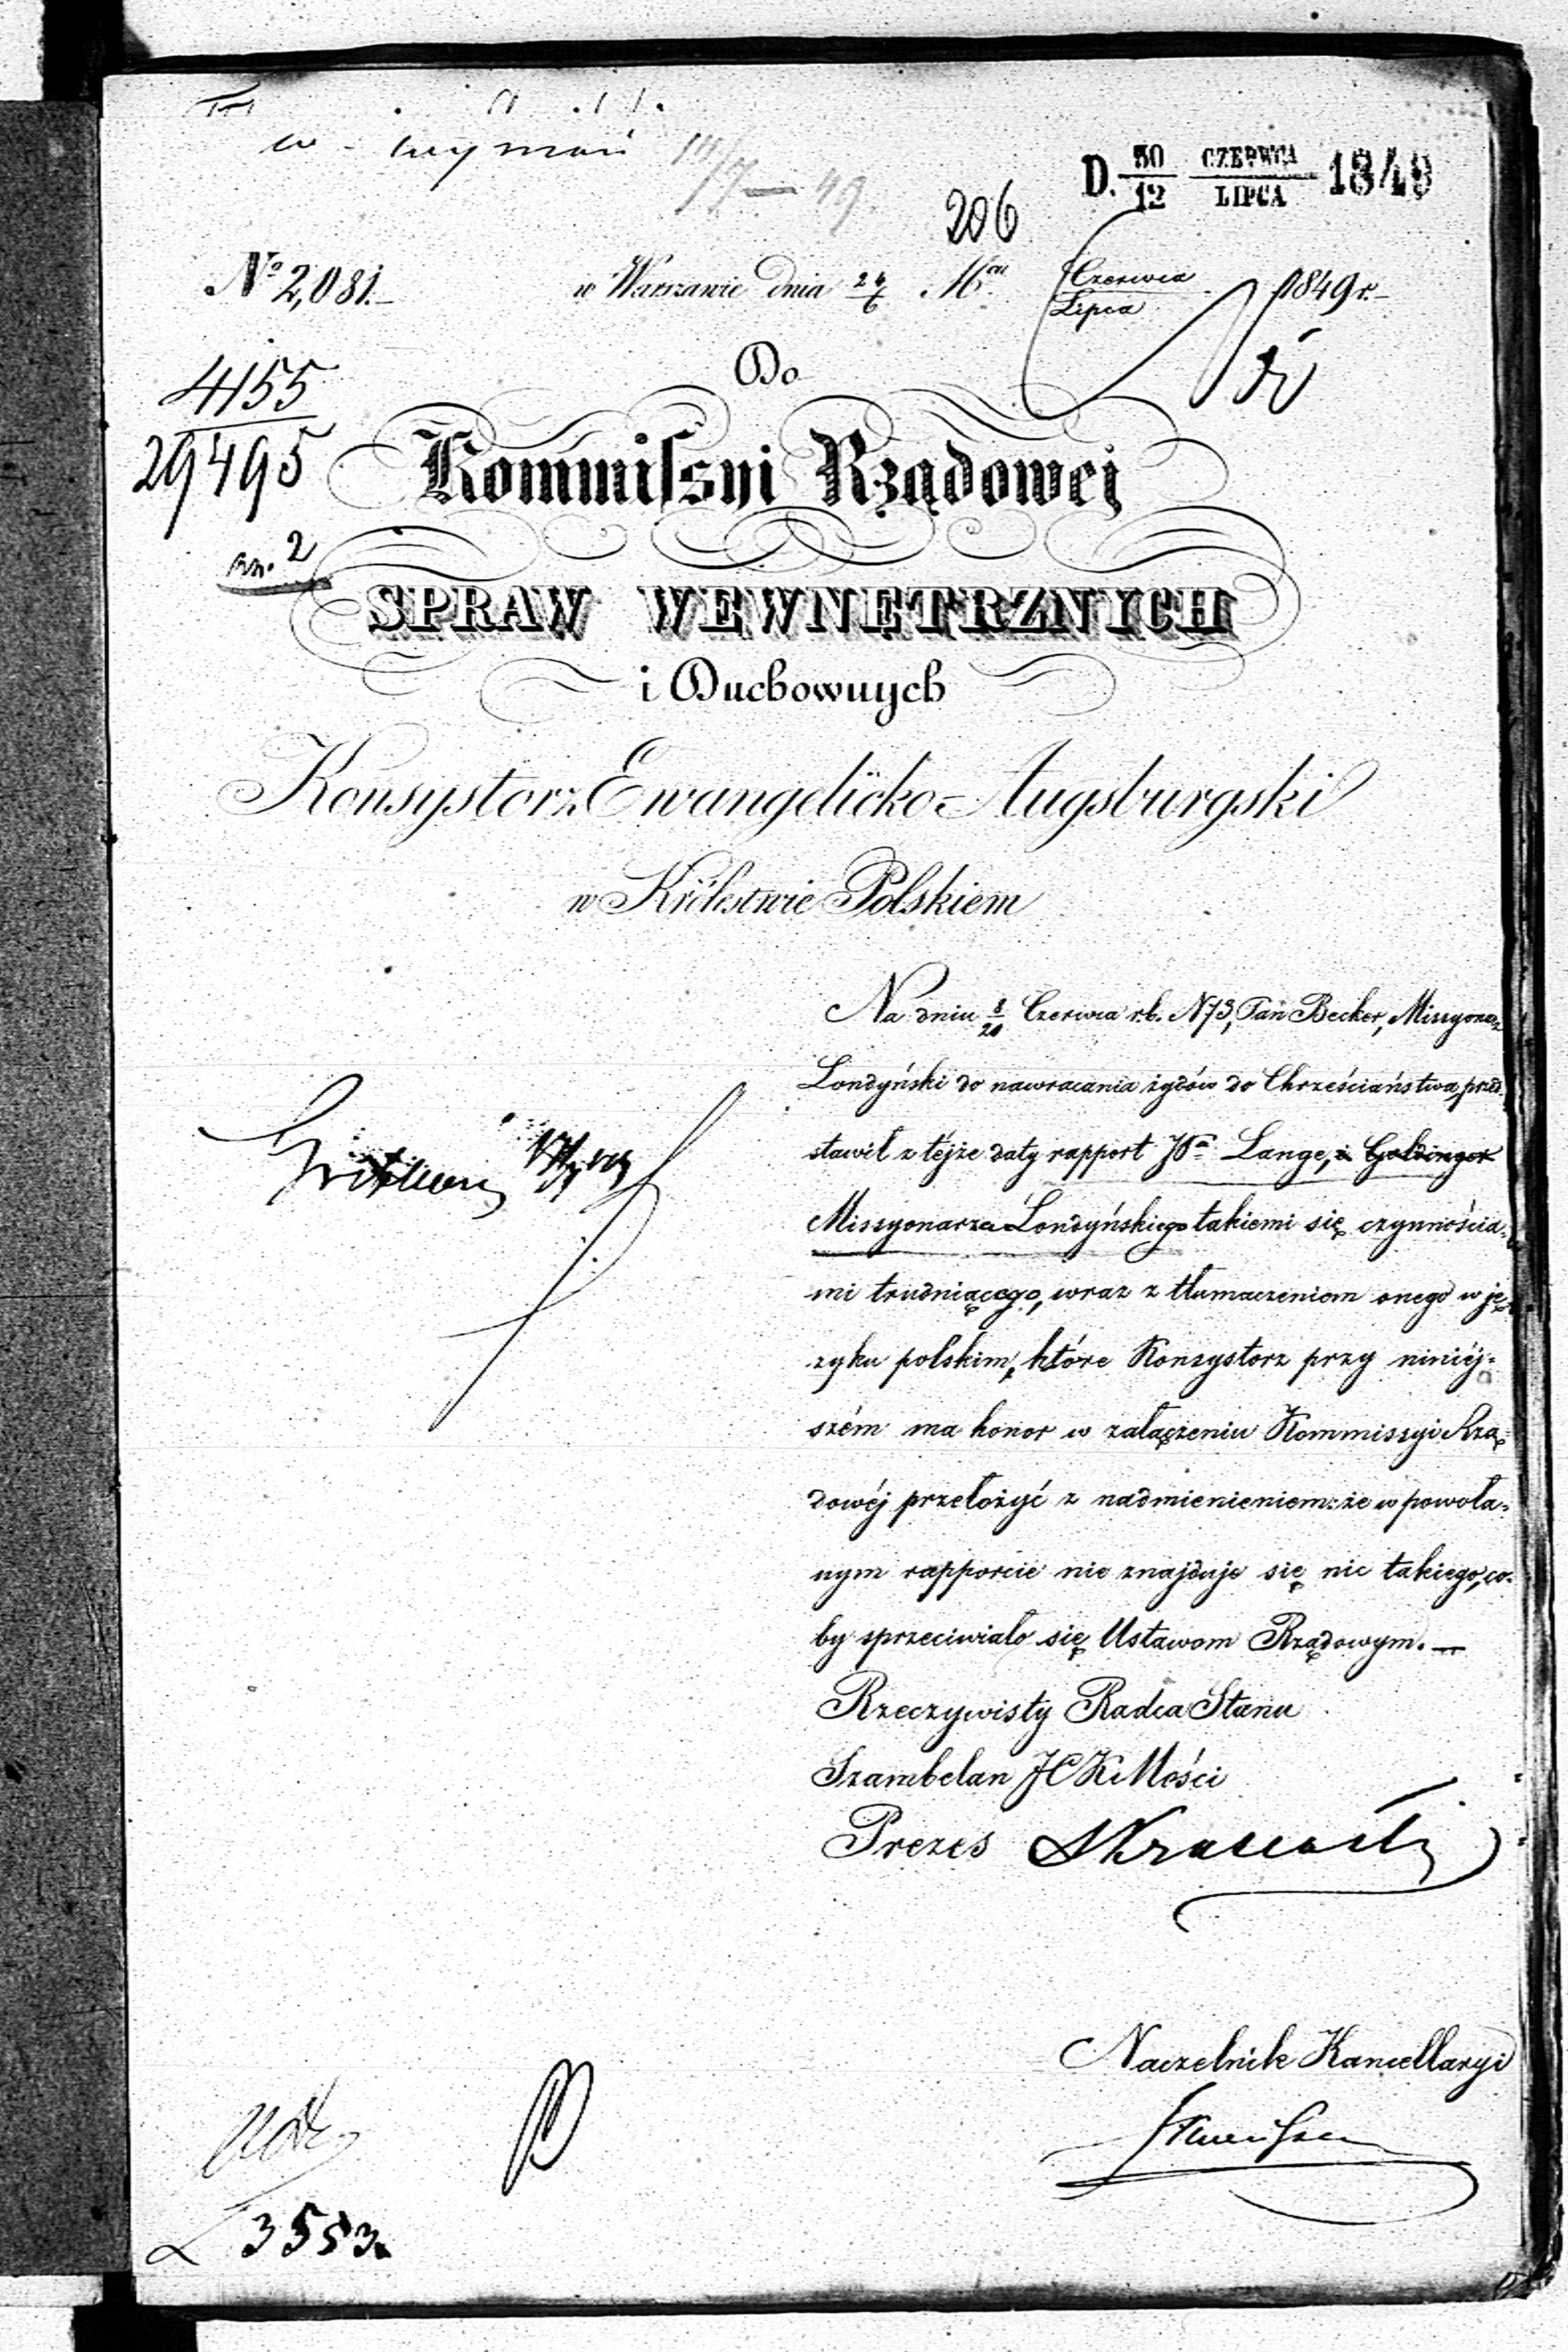 D. 30/12 CZERWCA/LIPCA 1849
206
№ 2,081.
w Warszawie dnia 24/6 M^ca Czerwca/Lipca 1849 r.
4155
29495
Do
Kommissyi Rządowej
SPRAW WEWNĘTRZNYCH
i Duchownych
Konsystorz Ewangelicko-Augsburgski
w Królestwie Polskiem
Na dniu 8/20 Czerwca r.b. N 73, Pan Becker, Missyonarz
Londyński do nawracania żydów do Chrześciaństwa, przed-
stawił z tejże daty rapport JPa Lange, i Goldinger
Missyonarza Londyńskiego takiemi się czynnościa-
mi trudniącego, wraz z tłumaczeniem onego w ję-
zyku polskim, które Konsystorz przy niniéj-
szém ma honor w załączeniu Kommissyi Rzą-
dowéj przełożyć z nadmienieniem: że w powoła-
nym rapporcie nie znajduje się nic takiego, co-
by sprzeciwiało się Ustawom Rządowym.
Rzeczywisty Radca Stanu
Szambelan JCK Mości
Prezes
Naczelnik Kancellaryi
3553